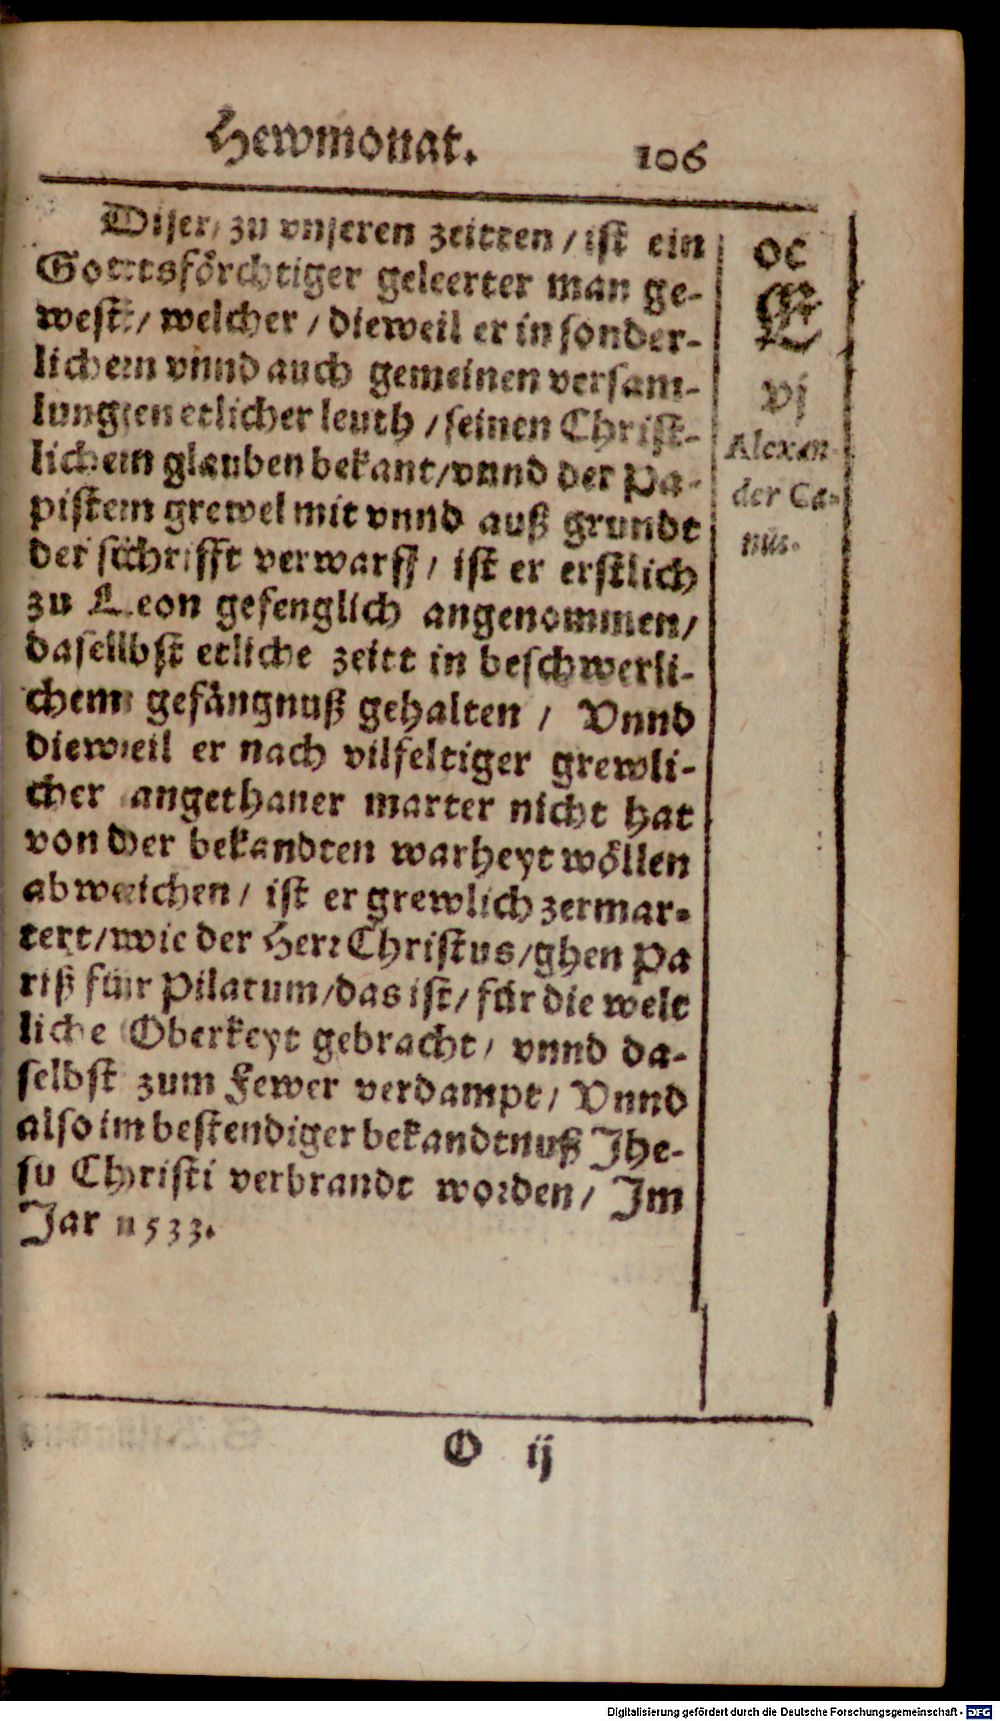 Hewmonat. 106
Diser/ zu vnseren zeitten / ist ein
Gottsförchtiger geleerter man ge-
west / welcher / dieweil er in sonder-
lichem vnnd auch gemeinen versam-
lungen etlicher leuth / seinen Christ-
lichem glauben bekant/vnnd der Pa-
pistem grewel mit vnnd auß grundt
der schrifft verwarff / ist er erstlich
zu Leon gefenglich angenommen/
dasellbst etliche zeitt in beschwerli-
chem gefängnuß gehalten / Vnnd
dieweil er nach vilfeltiger grewli-
cher angethaner marter nicht hat
von der bekandten warheyt wöllen
abweichen / ist er grewlich zermar-
tert/wie der Herr Christus/ghen Pa
riß für Pilatum/das ist/ für die welt
liche Oberkeyt gebracht / vnnd da-
selbst zum Fewer verdampt / Vnnd
also im bestendiger bekandtnuß Jhe-
su Christi verbrandt worden / Im
Jar 1533.
oc
E
vj
Alexan-
der Ca-
nus.
O ij
Digitalisierung gefördert durch die Deutsche Forschungsgemeinschaft - DFG